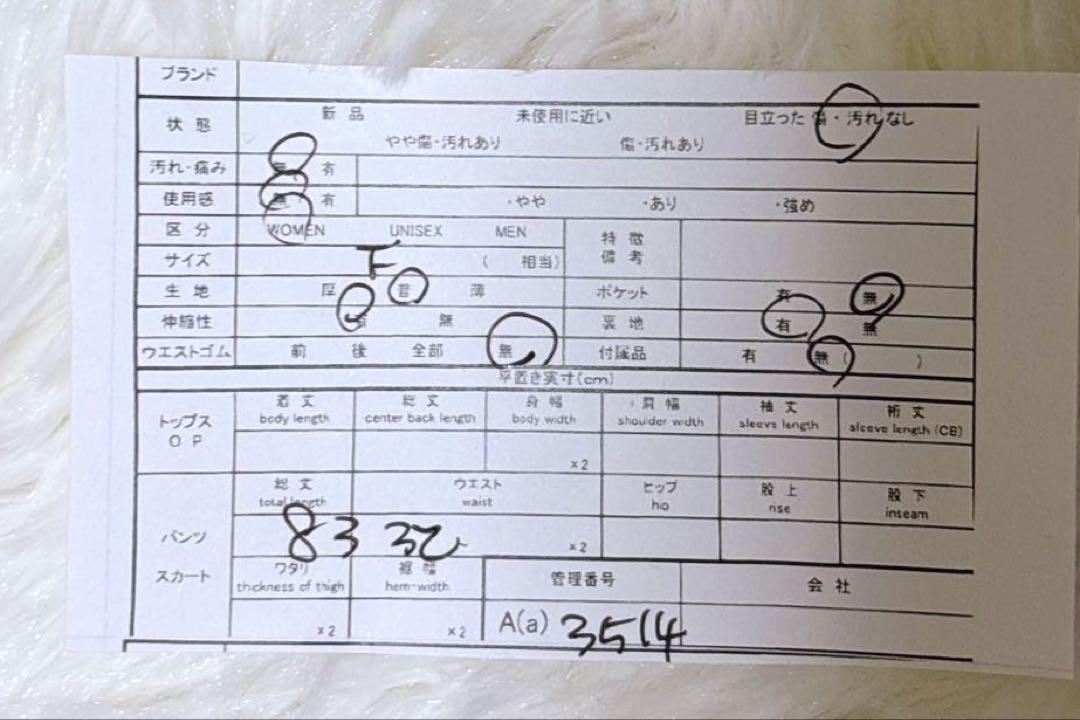 ブランド
状態 新品 未使用に近い 目立った 傷・汚れ なし
やや傷・汚れあり 傷・汚れあり
汚れ・痛み 無 有
使用感 無 有 ・やや ・あり ・強め
区分 WOMEN UNISEX MEN 特徴
備考
サイズ F ( 相当)
生地 厚 普 薄 ポケット 有 無
伸縮性 有 無 裏地 有 無
ウエストゴム 前 後 全部 無 付属品 有 無 ( )
平置き実寸(cm)
トップス
OP
着丈 総丈 身幅 肩幅 袖丈 裄丈
body length center back length body width shoulder width sleeve length sleeve length (CB)
×2
パンツ
スカート
総丈 ウエスト ヒップ 股上 股下
total length waist hip rise inseam
83 32 ×2
ワタリ 裾幅 管理番号 会社
thickness of thigh hem-width
×2 ×2 A(a) 3514